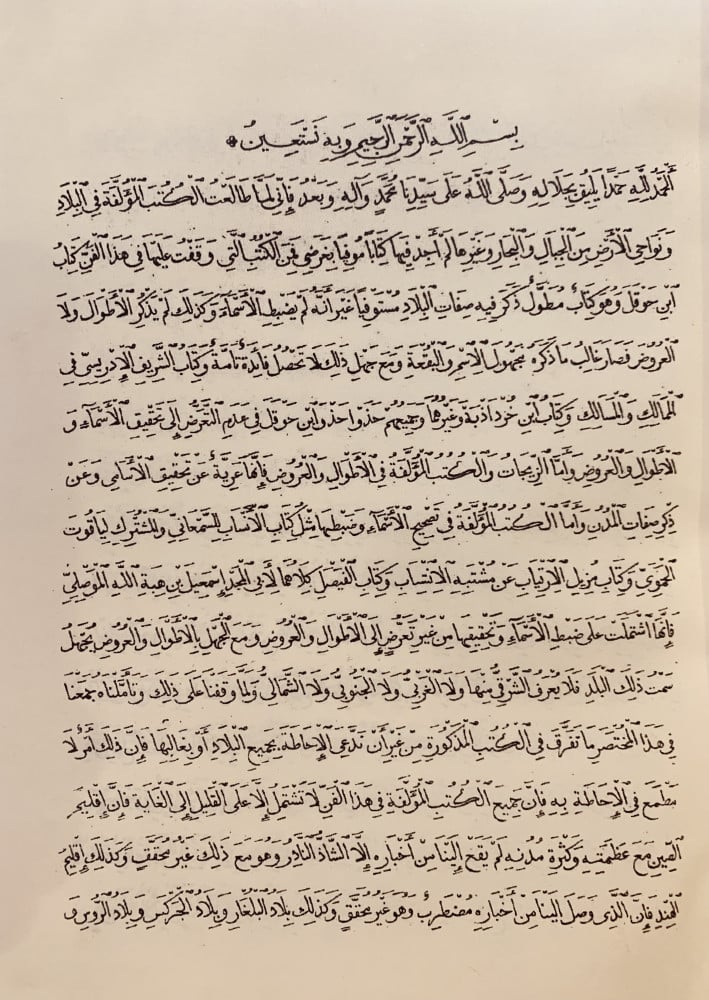 بِسْمِ اللَّهِ الرَّحْمَنِ الرَّحِيمِ وَبِهِ نَسْتَعِينُ
اَلْحَمْدُ لِلَّهِ حَمْدًا يَلِيقُ بِجَلَالِهِ وَصَلَّى اللَّهُ عَلَى سَيِّدِنَا مُحَمَّدٍ وَآلِهِ وَبَعْدُ فَإِنِّي لَمَّا طَالَعْتُ الْكُتُبَ الْمُؤَلَّفَةَ فِي الْبِلَادِ
وَنَوَاحِي الْأَرْضِ مِنَ الْجِبَالِ وَالْبِحَارِ وَغَيْرِهَا لَمْ أَجِدْ فِيهَا كِتَابًا مُوفِيًا بِغَرَضِي فَمِنَ الْكُتُبِ الَّتِي وَقَفْتُ عَلَيْهَا فِي هَذَا الْفَنِّ كِتَابُ
ابْنِ حَوْقَلٍ وَهُوَ كِتَابٌ مُطَوَّلٌ ذَكَرَ فِيهِ صِفَاتِ الْبِلَادِ مُسْتَوْفِيًا غَيْرَ أَنَّهُ لَمْ يَضْبِطِ الْأَسْمَاءَ وَكَذَلِكَ لَمْ يَذْكُرِ الْأَطْوَالَ وَلَا
الْعُرُوضَ فَصَارَ غَالِبُ مَا ذَكَرَهُ مَجْهُولَ الْاِسْمِ وَالْبُقْعَةِ وَمَعَ جَهْلِ ذَلِكَ لَا تَحْصُلُ فَايِدَةٌ تَامَّةٌ وَكِتَابُ الشَّرِيفِ الْإِدْرِيسِيِّ فِي
الْمَمَالِكِ وَالْمَسَالِكِ وَكِتَابُ ابْنِ خُرْدَاذْبَةَ وَغَيْرُهُمَا وَجَمِيعُهُمْ حَذَوْا حَذْوَ ابْنِ حَوْقَلَ فِي عَدَمِ التَّعَرُّضِ إِلَى تَحْقِيقِ الْأَسْمَاءِ وَ
الْأَطْوَالِ وَالْعُرُوضِ وَأَمَّا الزِّيجَاتُ وَالْكُتُبُ الْمُؤَلَّفَةُ فِي الْأَطْوَالِ وَالْعُرُوضِ فَإِنَّهَا عَرِيَّةٌ عَنْ تَحْقِيقِ الْأَسَامِي وَعَنْ
ذِكْرِ صِفَاتِ الْمُدُنِ وَأَمَّا الْكُتُبُ الْمُؤَلَّفَةُ فِي تَصْحِيحِ الْأَسْمَاءِ وَضَبْطِهَا مِثْلُ كِتَابِ الْأَنْسَابِ لِلسَّمْعَانِي وَالْمُشْتَرَكِ لِيَاقُوتَ
الْحَمَوِيِّ وَكِتَابِ مُزِيلِ الْاِرْتِيَابِ عَنْ مُشْتَبِهِ الْاِنْتِسَابِ وَكِتَابِ الْفَيْصَلِ كِلَاهُمَا لِأَبِي الْمَجْدِ إِسْمَعِيلَ بْنِ هِبَةِ اللَّهِ الْمَوْصِلِيِّ
فَإِنَّهَا اشْتَمَلَتْ عَلَى ضَبْطِ الْأَسْمَاءِ وَتَحْقِيقِهَا مِنْ غَيْرِ تَعَرُّضٍ إِلَى الْأَطْوَالِ وَالْعُرُوضِ وَمَعَ الْجَهْلِ بِالْأَطْوَالِ وَالْعُرُوضِ يُجْهَلُ
سَمْتُ ذَلِكَ الْبَلَدِ فَلَا يُعْرَفُ الشَّرْقِيُّ مِنْهَا وَلَا الْغَرْبِيُّ وَلَا الْجَنُوبِيُّ وَلَا الشَّمَالِيُّ وَلَمَّا وَقَفْنَا عَلَى ذَلِكَ وَتَأَمَّلْنَاهُ جَمَعْنَا
فِي هَذَا الْمُخْتَصَرِ مَا تَفَرَّقَ فِي الْكُتُبِ الْمَذْكُورَةِ مِنْ غَيْرِ أَنْ نَدَّعِيَ الْإِحَاطَةَ بِجَمِيعِ الْبِلَادِ أَوْ بِغَالِبِهَا فَإِنَّ ذَلِكَ أَمْرٌ لَا
مَطْمَعَ فِي الْإِحَاطَةِ بِهِ فَإِنَّ جَمِيعَ الْكُتُبِ الْمُؤَلَّفَةِ فِي هَذَا الْفَنِّ لَا تَشْتَمِلُ إِلَّا عَلَى الْقَلِيلِ إِلَى الْغَايَةِ فَإِنَّ إِقْلِيمَ
الصِّينِ مَعَ عَظَمَتِهِ وَكَثْرَةِ مُدُنِهِ لَمْ يَقَعْ إِلَيْنَا مِنْ أَخْبَارِهِ إِلَّا الشَّاذُّ النَّادِرُ وَهُوَ مَعَ ذَلِكَ غَيْرُ مُحَقَّقٍ وَكَذَلِكَ إِقْلِيمُ
الْهِنْدِ فَإِنَّ الَّذِي وَصَلَ إِلَيْنَا مِنْ أَخْبَارِهِ مُضْطَرِبٌ وَهُوَ غَيْرُ مُحَقَّقٍ وَكَذَلِكَ بِلَادُ الْبُلْغَارِ وَبِلَادُ الْجَرْكَسِ وَبِلَادُ الرُّوسِ وَ